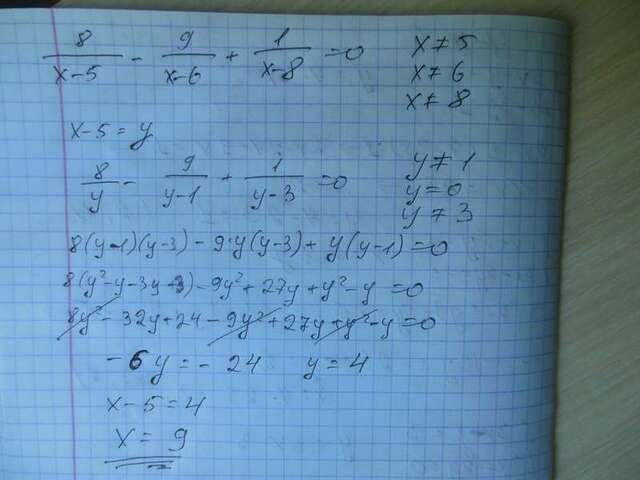 8/(x-5) - 9/(x-6) + 1/(x-8) = 0 x ≠ 5
x ≠ 6
x ≠ 8
x-5 = y
8/y - 9/(y-1) + 1/(y-3) = 0 y ≠ 1
y = 0
y ≠ 3
8(y-1)(y-3) - 9·y(y-3) + y(y-1) = 0
8(y²-y-3y+3) - 9y² + 27y + y² - y = 0
8y² - 32y + 24 - 9y² + 27y + y² - y = 0
-6y = -24 y = 4
x-5 = 4
x = 9